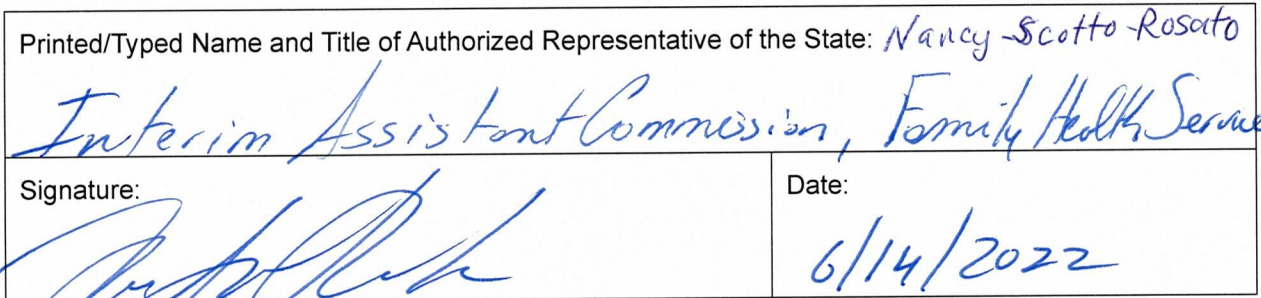 Printed/Typed Name and Title of Authorized Representative of the State: Nancy Scotto-Rosato
Interim Assistant Commission, Family Health Service
Signature:
Date:
6/14/2022